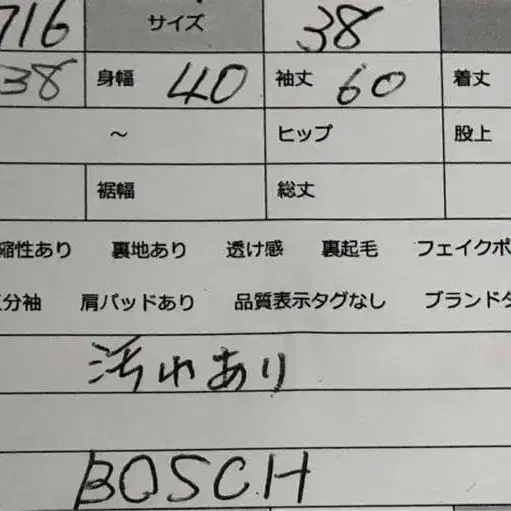 716 サイズ 38
38 身幅 40 袖丈 60 着丈
~ ヒップ 股上
裾幅 総丈
縮性あり 裏地あり 透け感 裏起毛 フェイクポ
分袖 肩パッドあり 品質表示タグなし ブランドタ
汚れあり
BOSCH